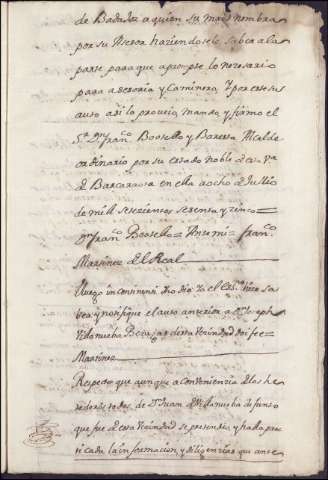 de Badajoz a quien su mrd nombra
por su Asesor haziendoselo saber a la
parte para que apronpte lo nesesario
para asesoria y Caminero, Y por este su
auto asi lo proveio, mando, y firmo el
Sr Dn franco Bootello y Alcalde
ordinario por su estado noble de esta va
de Barcarrota en ella a ocho de Jullio
de mill setezientos setenta y zinco =
Dn franco Bootello = Ante mi = franco
Martinez del Real
Luego incontinenti dho dia Yo el Esno hize sa
ver y notifique el auto anterior a Dn Joseph
Villanueba desta Vezindad doi fee =
Martinez
Respecto que aunque a conteniencia de los he
rederos de Dn Juan de Villanueba difunto
que fue de esta Vezindad se presento, y halla prac
ticada la informazion, y diligenzias que ante